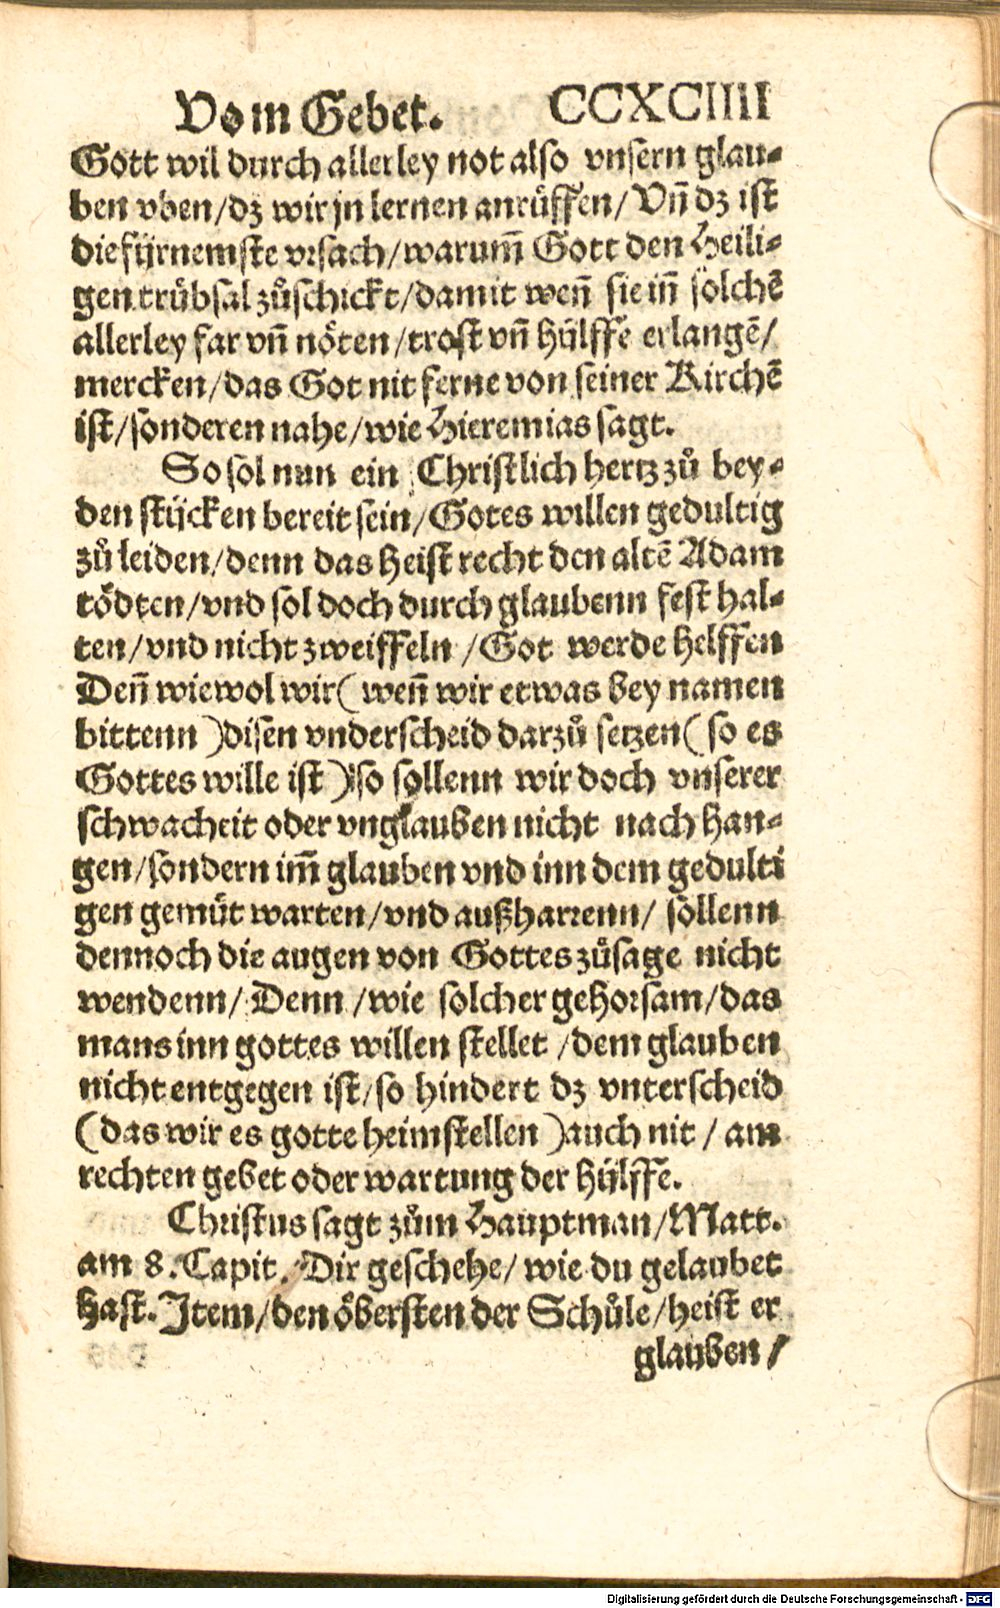 Vom Gebet. CCXCIIII
Gott wil durch allerley not also vnsern glau-
ben vben/dz wir jn lernen anrůffen/Vñ dz ist
die fijrnemste vrsach/warum̃ Gott den Heili-
gen trübsal zůschickt/damit weñ sie iñ sölchẽ
allerley far vñ nöten/trost vñ hijlffe erlangẽ/
mercken/das Got nit ferne von seiner Kirchẽ
ist/sonderen nahe/wie Hieremias sagt.
So sol nun ein Christlich hertz zů bey-
den stijcken bereit sein/Gotes willen gedultig
zů leiden/denn das heist recht den altẽ Adam
tödten/vnd sol doch durch glaubenn fest hal-
ten/vnd nicht zweiffeln/Got werde helffen
Deñ wiewol wir(weñ wir etwas bey namen
bittenn)disen vnderscheid darzů setzen(so es
Gottes wille ist)so sollenn wir doch vnserer
schwacheit oder vnglauben nicht nach han-
gen/sondern im̃ glauben vnd inn dem gedulti
gen gemüt warten/vnd außharrenn/ söllenn
dennoch die augen von Gottes zůsage nicht
wendenn/ Denn/wie solcher gehorsam/das
mans inn gottes willen stellet/dem glauben
nicht entgegen ist/so hindert dz vnterscheid
(das wir es gotte heimstellen)auch nit/am
rechten gebet oder wartung der hijlffe.
Christus sagt zům Hauptman/Matt.
am 8. Capit. Dir geschehe/wie du gelaubet
hast. Item/den öbersten der Schůle/heist er
glauben/
Digitalisierung gefördert durch die Deutsche Forschungsgemeinschaft - DFG